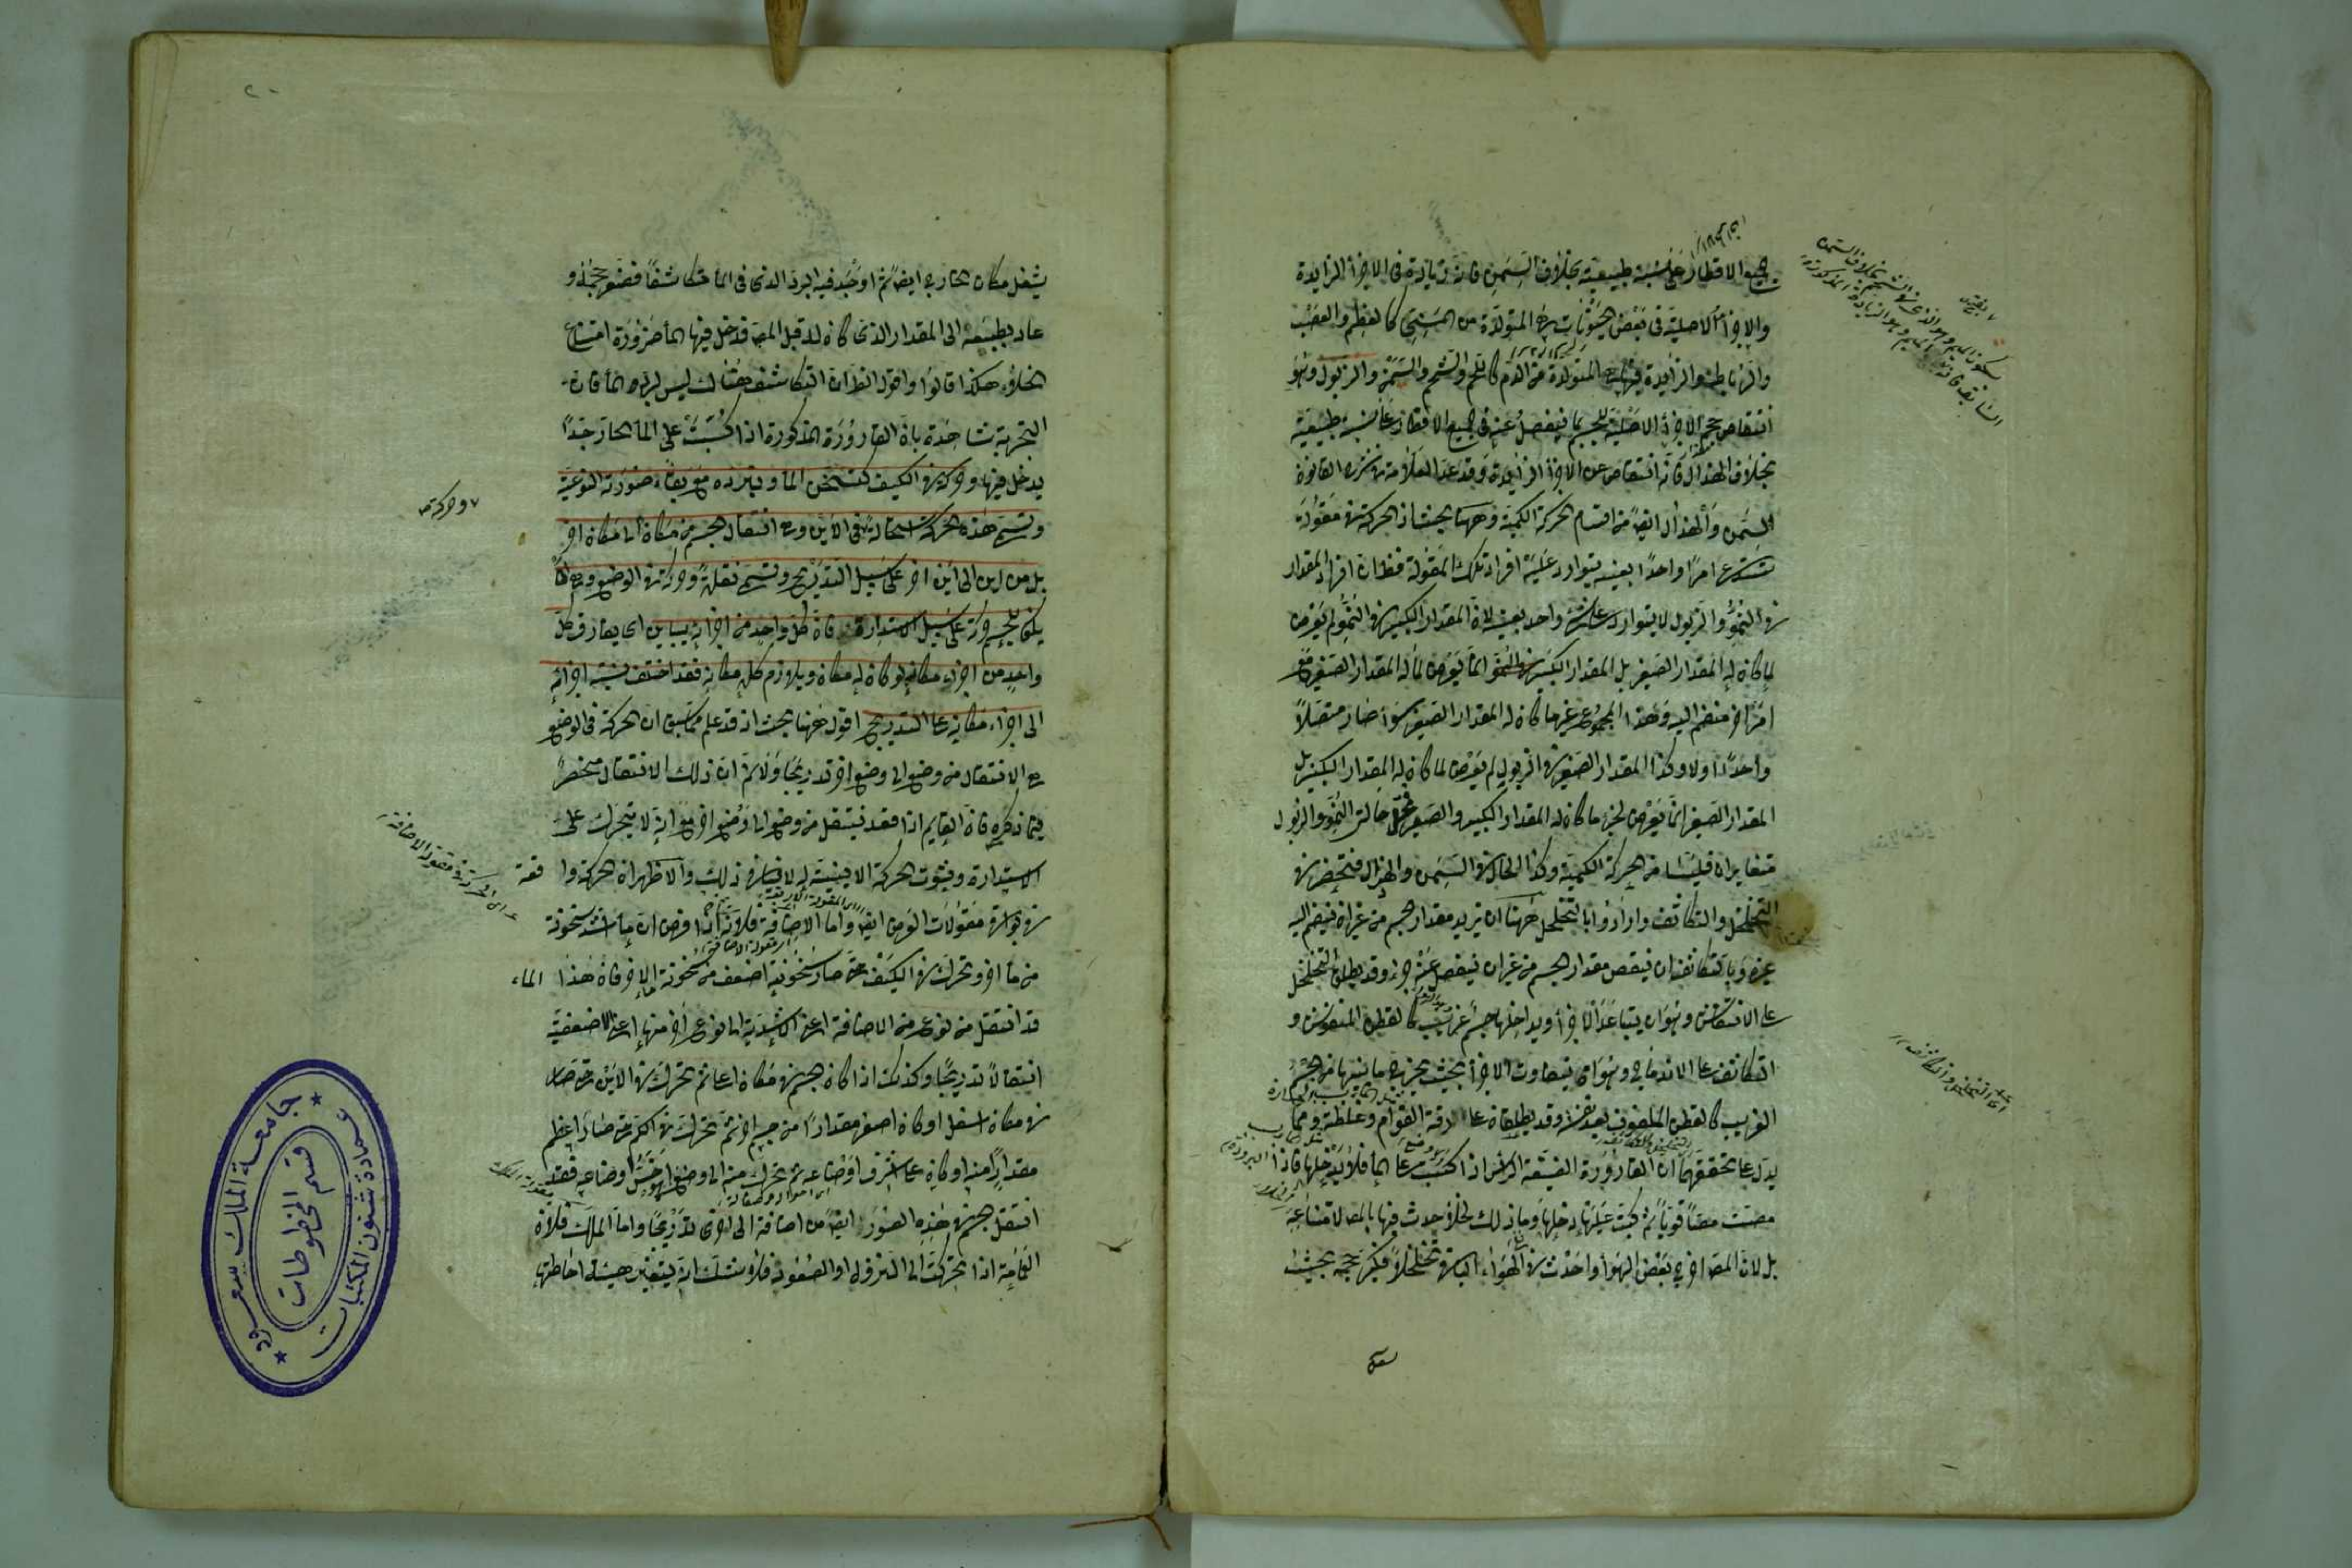 جميع الاقطار على نسبة طبيعية بخلاف السمن فانه زيادة فى الاجزاء الزايدة
والاجزاء الاصلية فى بعض الحيوانات هى المتولدة من المنى كالعظم والعصب
والرباط والزايدة فيها هى المتولدة من الدم كاللحم والشحم والسمن والذبول وهو
انتقاص حجم الاجزاء الاصلية للجسم بما ينفصل عنه فى جميع الاقطار على نسبة طبيعية
بخلاف الهزال فانه انتقاص عن الاجزاء الزايدة وقد عد العلامة فى شرح القانون
السمن والهزال ايضا من اقسام الحركة الكمية وههنا بحث اذ الحركة فى مقولة
تستدعى امرا واحدا بعينه يتوارد عليه افراد تلك المقولة فظ ان افراد المقدار
فى النمو والذبول لا يتوارد على شئ واحد بعينه لان المقدار الكبير فى النمو لم يعرض
لما كان له المقدار الصغير بل المقدار الكبير فى النمو انما يعرض لما له المقدار الصغير مع
امر اخر منضم اليه وهذا المجموع غير ما كان له المقدار الصغير سواء صار متصلا
واحدا او لا وكذا المقدار الصغير فى الذبول لم يعرض لما كان له المقدار الكبير بل
المقدار الصغير انما يعرض لجزء ما كان له المقدار الكبير والصغير فى حالتى النمو والذبول
متغايران فليستا من الحركة الكمية وكذا الحال فى السمن والهزال فتنحصر فى
التخلخل والتكاثف وارادوا بالتخلخل ههنا ان يزيد مقدار جسم من غير ان ينضم اليه
غيره وبالتكاثف ان ينقص مقدار الجسم من غير ان ينفصل عنه جزء وقد يطلق التخلخل
على الانتفاش وهو ان يتباعد الاجزاء ويداخلها جسم غريب كالقطن المنفوش و
التكاثف على الاندماج وهو ان يتقارب الاجزاء بحيث يخرج ما بينها من الجسم
الغريب كالقطن الملفوف بعد نفشه وقد يطلقان على رقة القوام وغلظه ومما
يدل على تحققهما ان القارورة الضيقة الرأس اذا كبت على الماء فلا يدخلها فاذا
مصت مصا قويا ثم كبت عليها دخلها وما ذلك لخلاء حدث فيها بالمص لامتناعه
بل لان المص اخرج بعض الهواء واحدث فى الهواء الباقى تخلخلا فكبر حجمه بحيث
يشغل مكان الخارج ايضا ثم اوجب فيه البرد الذى فى الماء تكاثفا فصغر حجمه و
عاد بطبيعته الى المقدار الذى كان له قبل المص فدخل فيها الماء ضرورة امتناع
الخلاء هكذا قالوا واقول الظ ان التكاثف هناك ليس لبرد الماء فان
التجربة شاهدة بان القارورة المذكورة اذا كبت على الماء الحار جدا
يدخل فيها وحركة فى الكيف كتسخن الماء وتبرده مع بقاء صورته النوعية
وتسمى هذه الحركة استحالة وفى الاين وهى انتقال الجسم من مكان الى مكان اخر
بل من اين الى اين اخر على سبيل التدريج وتسمى نقلة وحركة فى الوضع وهى ان
يكون للجسم حركة على سبيل الاستدارة فان كل واحد من اجزائه يباين اى يفارق كل
واحد من اجزاء مكانه لو كان له مكان ويلازم كله مكانه فقد اختلف نسبة اجزائه
الى اجزاء مكانه على التدريج اقول ههنا بحث اذ قد علم مما سبق ان الحركة فى الوضع
هى الانتقال من وضع الى وضع اخر تدريجا ولا ثم ان ذلك الانتقال منحصر
فيما ذكره فان القايم اذا قعد ينتقل من وضع الى وضع اخر مع انه لا يتحرك على
الاستدارة وثبوت الحركة الاينية له لا ينافى ذلك والاظهر ان الحركة وا قعة
فى بواقى مقولات العرض ايضا واما الاضافة فلانه اذا فرض ان ماء اشد سخونة
من ماء اخر وتحرك فى الكيف حتى صار سخونته اضعف من سخونة الاخر فان هذا الماء
قد انتقل من نوع من الاضافة اعنى الاشدية الى نوع اخر منها اعنى الاضعفية
انتقالا تدريجا وكذلك اذا كان جسم فى مكان اعلى ثم تحرك فى الاين حتى صار
فى مكان اسفل او كان اصغر مقدارا من جسم اخر ثم تحرك فى الكم حتى صار اعظم
مقدارا منه او كان على اشرف اوضاعه ثم تحرك منه الى وضع هو اخس اوضاعه فقد
انتقل الجسم فى هذه الصور ايضا من اضافة الى اخرى تدريجا واما الملك فلان
العمامة اذا تحركت الى النزول او الصعود فلا شك ان يتغير هيئة احاطتها
وحركة
اى الحركة فى مقولة الاضافة
اى التخلخل والتكاثف
جامعة الملك سعود
عمادة شئون المكتبات
قسم المخطوطات
٢٠